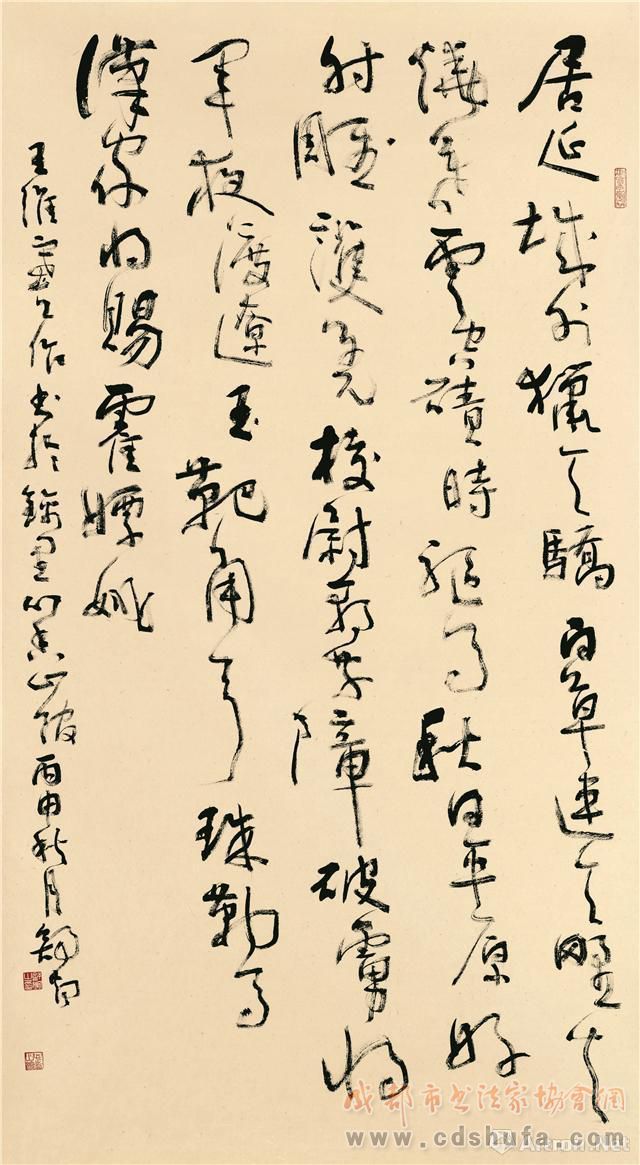 居延城外獵天驕白草連天野火
燒暮雲空磧時驅馬秋日平原好
射雕護羌校尉朝乘障破虜將
軍夜渡遼玉靶角弓珠勒馬
漢家將賜霍嫖姚
王維出塞之作书於錦里心香山館丙申秋月舒炯
成都市书法家協會網
www.cdshufa.com
Artron.Net